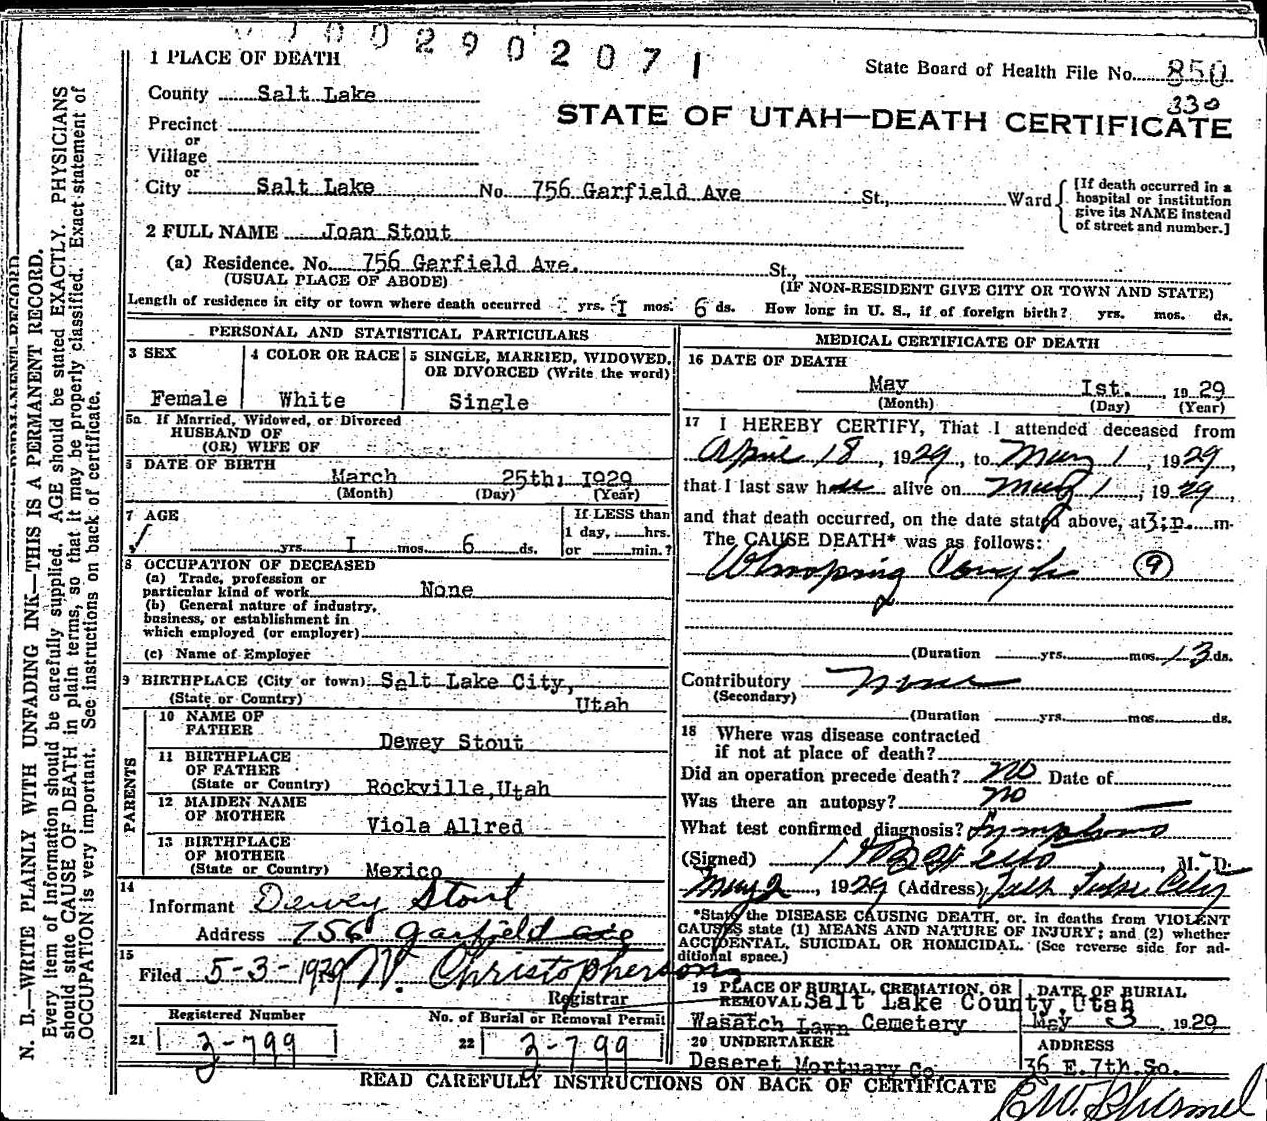 00290 2071
1 PLACE OF DEATH
State Board of Health File No. 850
330
County Salt Lake
STATE OF UTAH—DEATH CERTIFICATE
Precinct
or
Village
or
City Salt Lake No. 756 Garfield Ave St., Ward
[If death occurred in a
hospital or institution
give its NAME instead
of street and number.]
2 FULL NAME Joan Stout
(a) Residence. No. 756 Garfield Ave. St.,
(USUAL PLACE OF ABODE) (IF NON-RESIDENT GIVE CITY OR TOWN AND STATE)
Length of residence in city or town where death occurred - yrs. I mos. 6 ds. How long in U. S., if of foreign birth? yrs. mos. ds.
PERSONAL AND STATISTICAL PARTICULARS
3 SEX
Female
4 COLOR OR RACE
White
5 SINGLE, MARRIED, WIDOWED,
OR DIVORCED (Write the word)
Single
5a If Married, Widowed, or Divorced
HUSBAND OF
(OR) WIFE OF
6 DATE OF BIRTH
March 25th, 1929
(Month) (Day) (Year)
7 AGE
yrs. I mos. 6 ds.
If LESS than
1 day, hrs.
or min.?
8 OCCUPATION OF DECEASED
(a) Trade, profession or
particular kind of work None
(b) General nature of industry,
business, or establishment in
which employed (or employer)
(c) Name of Employer
9 BIRTHPLACE (City or town) Salt Lake City,
(State or Country) Utah
PARENTS
10 NAME OF
FATHER
Dewey Stout
11 BIRTHPLACE
OF FATHER
(State or Country) Rockville, Utah
12 MAIDEN NAME
OF MOTHER
Viola Allred
13 BIRTHPLACE
OF MOTHER
(State or Country) Mexico
14
Informant Dewey Stout
Address 756 Garfield ave
15
Filed 5-3-1929 W. Christopherson
Registrar
Registered Number
21 2-799
No. of Burial or Removal Permit
22 2-799
MEDICAL CERTIFICATE OF DEATH
16 DATE OF DEATH
May Ist. 1929
(Month) (Day) (Year)
17 I HEREBY CERTIFY, That I attended deceased from
April 18, 1929, to May 1, 1929,
that I last saw her alive on May 1, 1929,
and that death occurred, on the date stated above, at 3:p. m.
The CAUSE DEATH* was as follows:
Whooping Cough 9
(Duration yrs. mos. 13 ds.
Contributory none
(Secondary)
(Duration yrs. mos. ds.
18 Where was disease contracted
if not at place of death?
Did an operation precede death? no Date of
Was there an autopsy? no
What test confirmed diagnosis? Symptoms
(Signed) , M. D.
May 2, 1929 (Address) Salt Lake City
*State the DISEASE CAUSING DEATH, or, in deaths from VIOLENT
CAUSES state (1) MEANS AND NATURE OF INJURY; and (2) whether
ACCIDENTAL, SUICIDAL OR HOMICIDAL. (See reverse side for ad-
ditional space.)
19 PLACE OF BURIAL, CREMATION, OR
REMOVAL Salt Lake County, Utah
Wasatch Lawn Cemetery
DATE OF BURIAL
May 3 1929
20 UNDERTAKER
Deseret Mortuary Co
ADDRESS
36 E. 7th. So.
READ CAREFULLY INSTRUCTIONS ON BACK OF CERTIFICATE
N. B.—WRITE PLAINLY WITH UNFADING INK—THIS IS A PERMANENT RECORD.
Every item of information should be carefully supplied. AGE should be stated EXACTLY. PHYSICIANS
should state CAUSE OF DEATH in plain terms, so that it may be properly classified. Exact statement of
OCCUPATION is very important. See instructions on back of certificate.